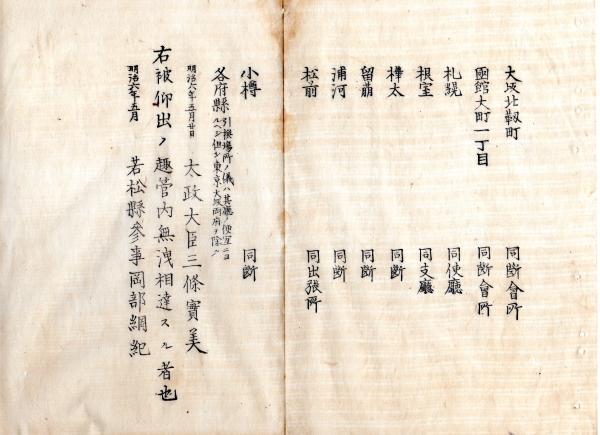 大坂北靱町 同断會所
函館大町一丁目 同断會所
札幌 同使廳
根室 同支廳
樺太 同断
留萠 同断
浦河 同断
松前 同出張所
小樽 同断
各府縣 引換場所ノ儀ハ其廳ノ便宜ニヨ
ルヘシ但シ東京大坂両府ヲ除ク
明治六年五月廿日 太政大臣三條實美
右被仰出ノ趣管内無洩相達スル者也
明治六年五月 若松縣参事岡部綱紀